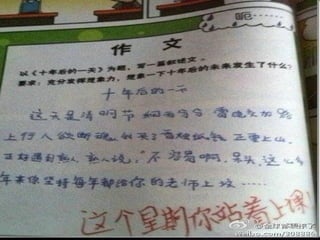 呃……
作 文
以《十年后的一天》为题，写一篇叙述文。
要求：充分发挥想象力，想象一下十年后的未来发生了什么？
十年后的一天
这天是清明节 雨纷纷 雷电交加 路
上行人欲断魂 我买了香烛纸钱 正要上山
正好遇到熟人，熟人说：“不容易啊，呆头，这么多
年来你坚持每年都给你的老师上坟……
这个星期你站着上课！